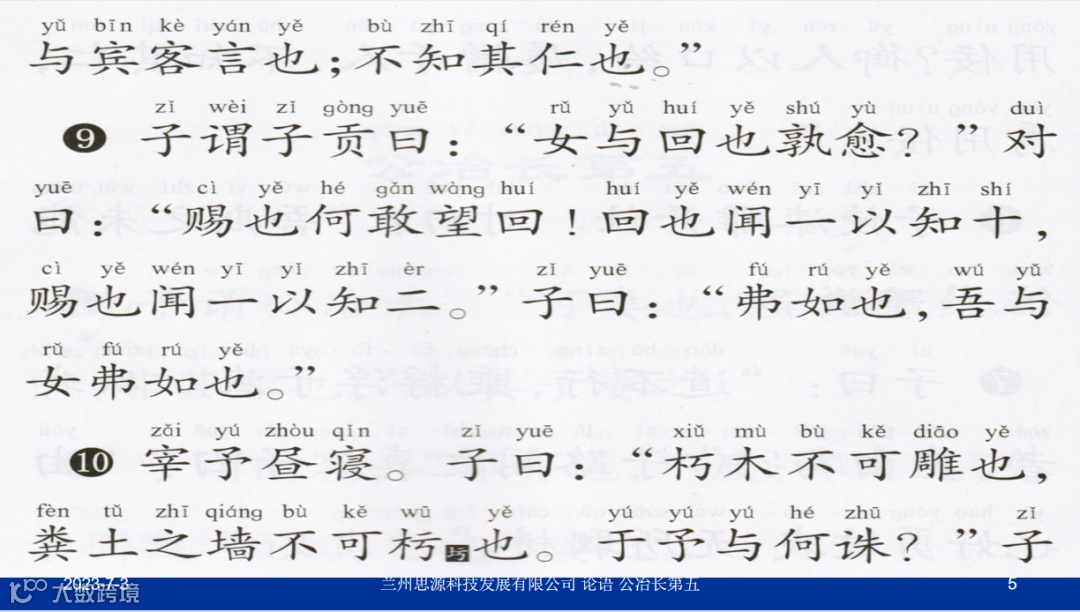 yǔ bīn kè yán yě bù zhī qí rén yě
与宾客言也;不知其仁也。”
zǐ wèi zǐ gòng yuē rǔ yǔ huí yě shú yù duì
9 子谓子贡曰:“女与回也孰愈?”对
yuē cì yě hé gǎn wàng huí huí yě wén yī yǐ zhī shí
曰:“赐也何敢望回!回也闻一以知十,
cì yě wén yī yǐ zhī èr zǐ yuē fú rú yě wú yǔ
赐也闻一以知二。”子曰:“弗如也,吾与
rǔ fú rú yě
女弗如也。”
zǎi yú zhòu qǐn zǐ yuē xiǔ mù bù kě diāo yě
10 宰予昼寝。子曰:“朽木不可雕也,
fèn tǔ zhī qiáng bù kě wū yě yú yú yú hé zhū zǐ
粪土之墙不可杇圬也。于予与何诛?”子
2023-7-3 兰州思源科技发展有限公司 论语 公冶长第五 5
大数跨境